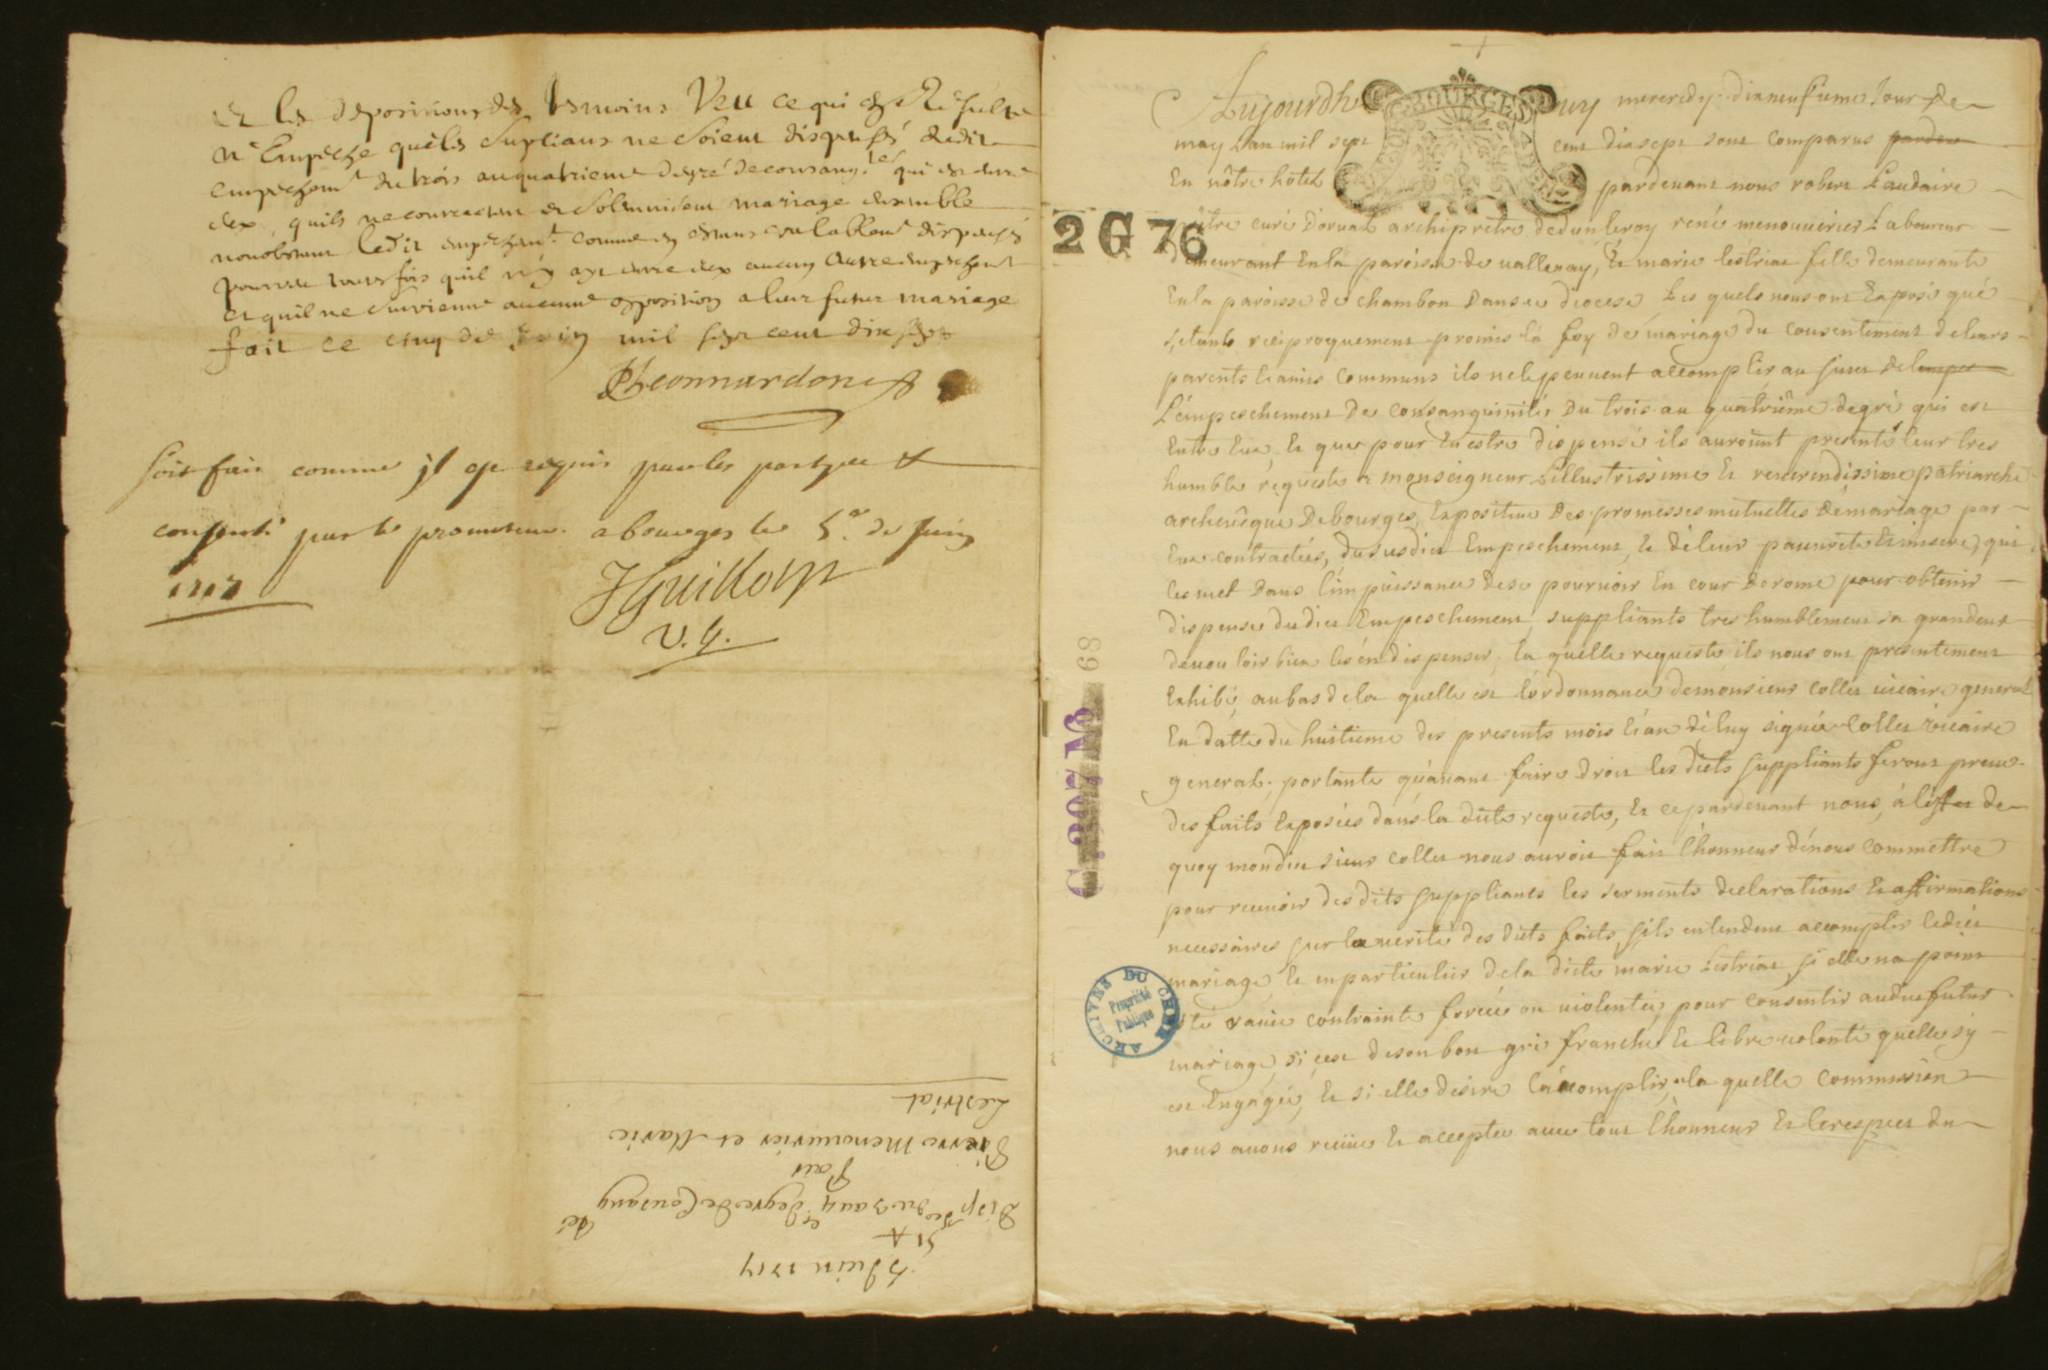 et les depositions des tesmoins Veu ce qui en Resulte
n'Empesche quels Suplians ne Soient dispensés dudit
empeschemt du trois au quatrieme degré de consang.té qui est entre
eux, quils ne contractent et Solemnisent mariage ensemble
nonobstant ledit empeschemt. comme en estans dispensés
pourveu toutes fois quil n'y ayt entre eux aucun Autre empeschemt
et quil ne Survienne aucune opposition a leur futur mariage
fait ce cinq de Juin mil sept cent dix sept
soit fait comme il est requis par les parties &
consenti par le promoteur. a bourges le 5e. de Juin
1717
JGuillon
v. g.
5 Juin 1717
Disp du 3 au 4 degré de Consang té
Pour
Pierre Menouvrier et Marie
Lestriat
BOURGES
Aujourdhuy mercredy dixneufieme Jour de
may Lan mil sept cent dixsept sont comparus pardev
En nôtre hotel pardevant nous robert Laudaire
prêtre curé Dorval archiprêtre de dunleroy rené menouvrier Laboureur
demeurant En la paroisse de vallenay, Et marie lestriat fille demeurante
En la paroisse de chambon Dans ce diocese, Les quels nous ont Exposé qué
s'etants reciproquement promis la foy de mariage du consentement de leurs
parents Et amis communs ils ne le peuvent accomplir au sujet de lempes
L'empeschement de consanguinité Du trois au quatriême degré qui est
Entre Eux, Et que pour En estre dispensé ils auroient presenté leur tres
humble requeste a monseigneur L'illustrissime Et reverendissime patriarche
archevêque De bourges, Expositive Des promesses mutuelles De mariage par
Eux contractées, du susdict Empeschement, Et de leur pauvreté Et misere, qui
les met Dans l'impuissance de se pourvoir En cour De rome pour obtenir
dispense du dict Empeschement, suppliants tres humblement sa grandeur
de vouloir bien les en dispenser, la quelle requeste ils nous ont presentement
Exhibé, au bas de la quelle est l'ordonnance de monsieur collet vicaire general
En datte du huitieme des presents mois Et an de luy signée Collet vicaire
general, portante qu'avant faire droit les dicts suppliants feront preuve
des faits Exposées dans la dicte requeste, Et ce pardevant nous, à l'effet de
quoy mondict sieur collet nous auroit fait l'honneur de nous commettre
pour recevoir des dits suppliants les serments declarations Et affirmations
necessaires sur la verité des dicts faits, s'ils entendent accomplir ledict
mariage Et en particulier de la dicte marie Lestriat si elle na point
été ravie contrainte forcée ou violentée, pour consentir audict futur
mariage, si c'est de son bon gré franche Et libre volonté quelle s'y
est Engagée, Et si elle desire l'accomplir, la quelle commission
nous avons recüe Et acceptée avec tout l'honneur Et le respect du
2 G 76
68
C. 297 N.
ARCHIVES DU CHER
Propriété
Publique